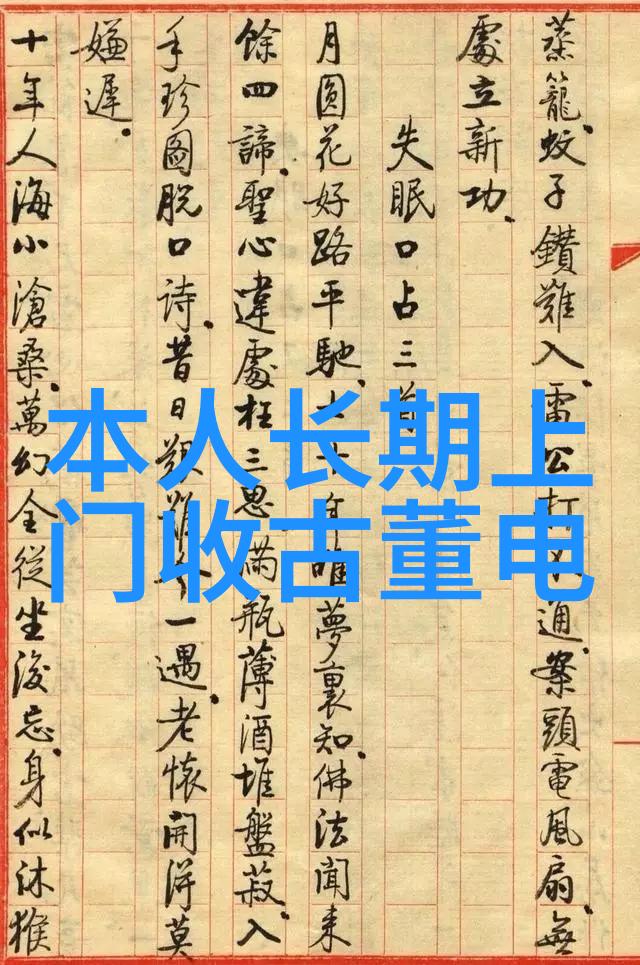 蒸籠.蚊子鑽難入.雷公打通.案頭電風扇.無
處立新功.
失眠口占三首
月圓花好路平馳.七十年唯夢裏知.佛法聞来
餘四諦.聖心違處枉三思.滿瓶薄酒堆盤菽.入
手珍圖脱口詩.昔日艱難今一遇.老懷開得莫
嫌遲.
十年人海小滄桑.萬幻全從坐後忘.身似沐猴
本人长期上
门收古董电